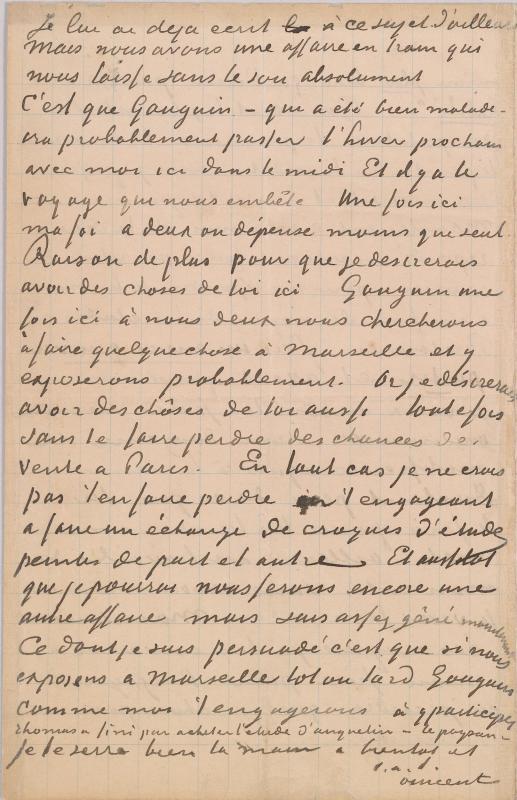 Je lui ai deja ecrit à ce sujet d'ailleurs
Mais nous avons une affaire en train qui
nous laisse sans le sou absolument
C'est que Gauguin – qui a été bien malade –
ira probablement passer l'hiver prochain
avec moi ici dans le midi Et il y a le
voyage qui nous embête Une fois ici
ma foi a deux on dépense moins que seul.
Raison de plus pour que je desirerais
avoir des choses de toi ici Gauguin une
fois ici à nous deux nous chercherons
à faire quelque chose à Marseille et y
exposerons probablement. Or je désirerais
avoir des chôses de toi aussi toutefois
sans te faire perdre des chances de
vente a Paris. En tout cas je ne crois
pas t'en faire perdre en t'engageant
a faire un échange de croquis d'études
peintes de part et autre Et aussitot
que je pourrai nous ferons encore une
autre affaire mais suis assez gêné
Ce dont je suis persuadé c'est que si nous
exposons a Marseille tot ou tard Gauguin
comme moi t'engagerons à y participer
Thomas a fini par acheter l'étude d'Anquetin – le paysan –
Je te serre bien la main a bientot et
t. à t.
Vincent